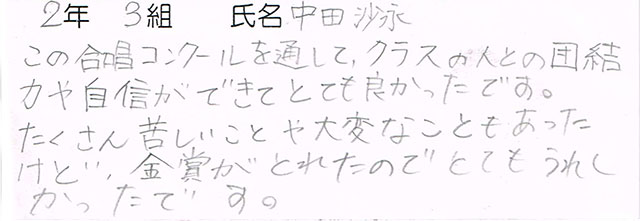 2年 3組 氏名 中田 沙永
この合唱コンクールを通して、クラスの人との団結
力や自信ができてとても良かったです。
たくさん苦しいことや大変なこともあった
けど、金賞がとれたのでとてもうれし
かったです。